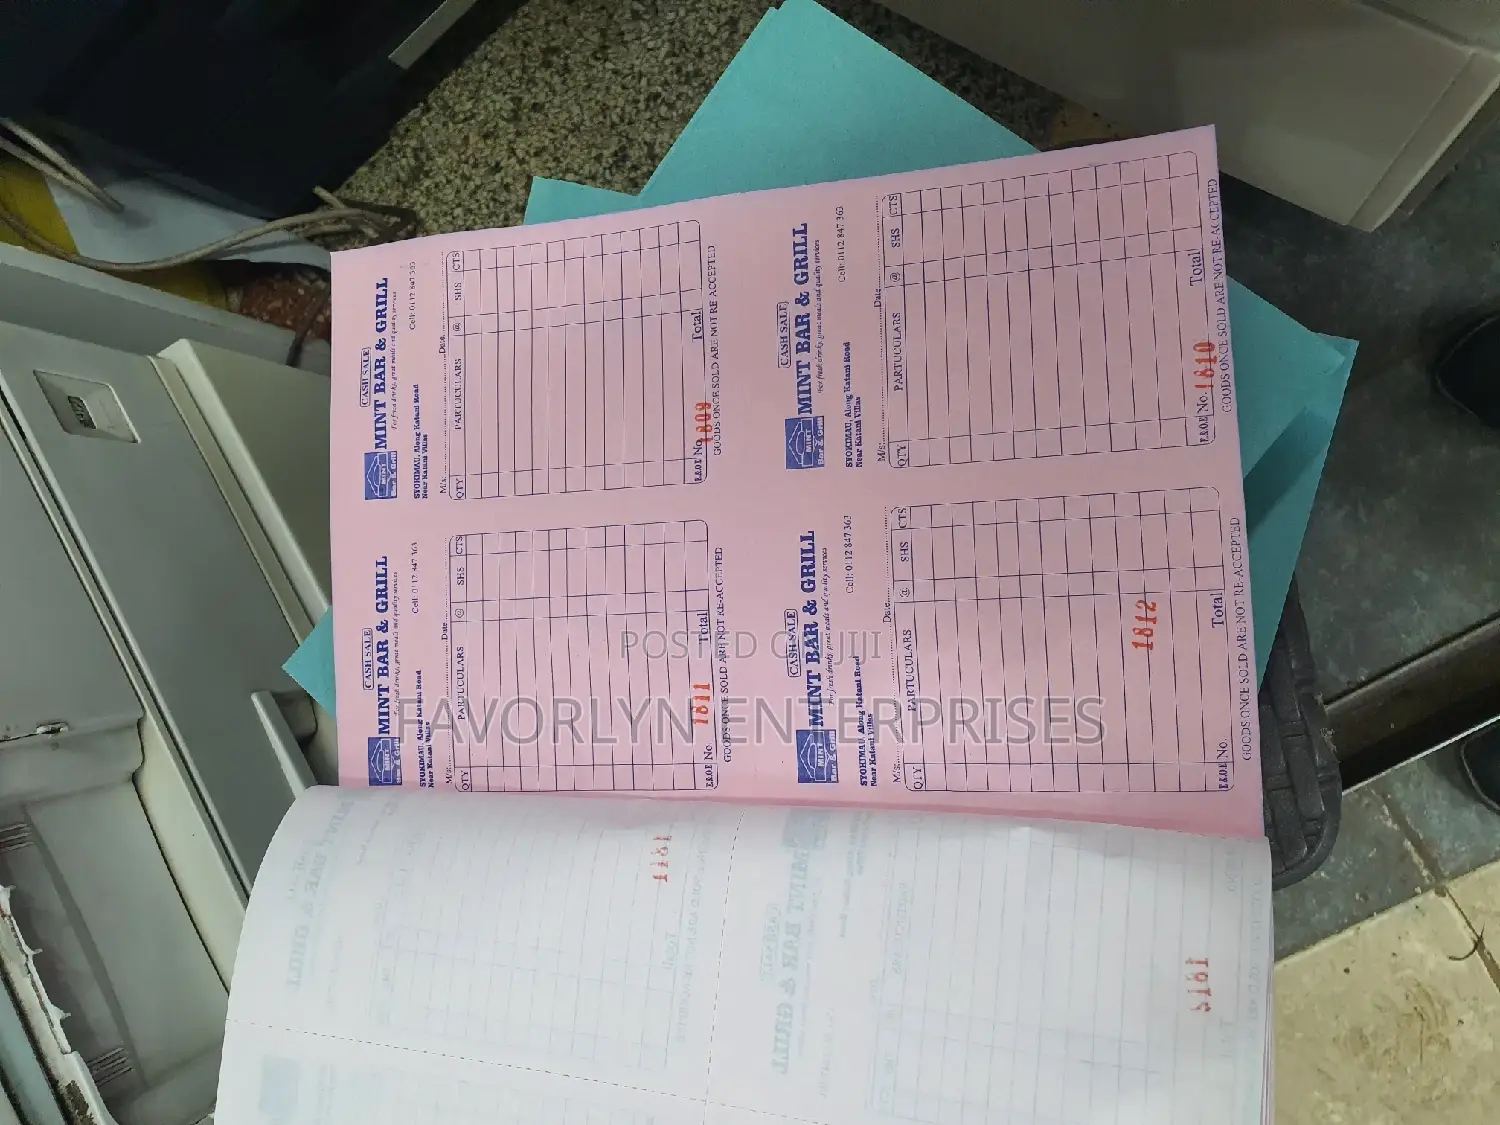 CASH SALE
MINT BAR & GRILL
For fresh drinks, great meals and quality services
MINT
Bar & Grill
SYOKIMAU, Along Katani Road
Near Katani Villas
Cell: 0112 847 363
M/s. Date
QTY PARTUCULARS @ SHS CTS
E&O.E No. 1809 Total
GOODS ONCE SOLD ARE NOT RE-ACCEPTED
CASH SALE
MINT BAR & GRILL
fresh drinks, great meals and quality services
MINT
Bar & Grill
SYOKIMAU, Along Katani Road
Near Katani Villas
Cell: 0112 847 363
M/s. Date
QTY PARTUCULARS @ SHS CTS
E&O.E No. 1810 Total
GOODS ONCE SOLD ARE NOT RE-ACCEPTED
CASH SALE
MINT BAR & GRILL
For fresh drinks, great meals and quality services
MINT
Bar & Grill
SYOKIMAU, Along Katani Road
Near Katani Villas
Cell: 0112 847 363
M/s. Date
QTY PARTUCULARS @ SHS CTS
E&O.E No. 1811 Total
GOODS ONCE SOLD ARE NOT RE-ACCEPTED
CASH SALE
MINT BAR & GRILL
For fresh drinks, great meals and quality services
MINT
Bar & Grill
SYOKIMAU, Along Katani Road
Near Katani Villas
Cell: 0112 847 363
M/s. Date
QTY PARTUCULARS @ SHS CTS
1812
E&O.E No. Total
GOODS ONCE SOLD ARE NOT RE-ACCEPTED
POSTED ON JIJI
AVORLYN ENTERPRISES
1811
1812